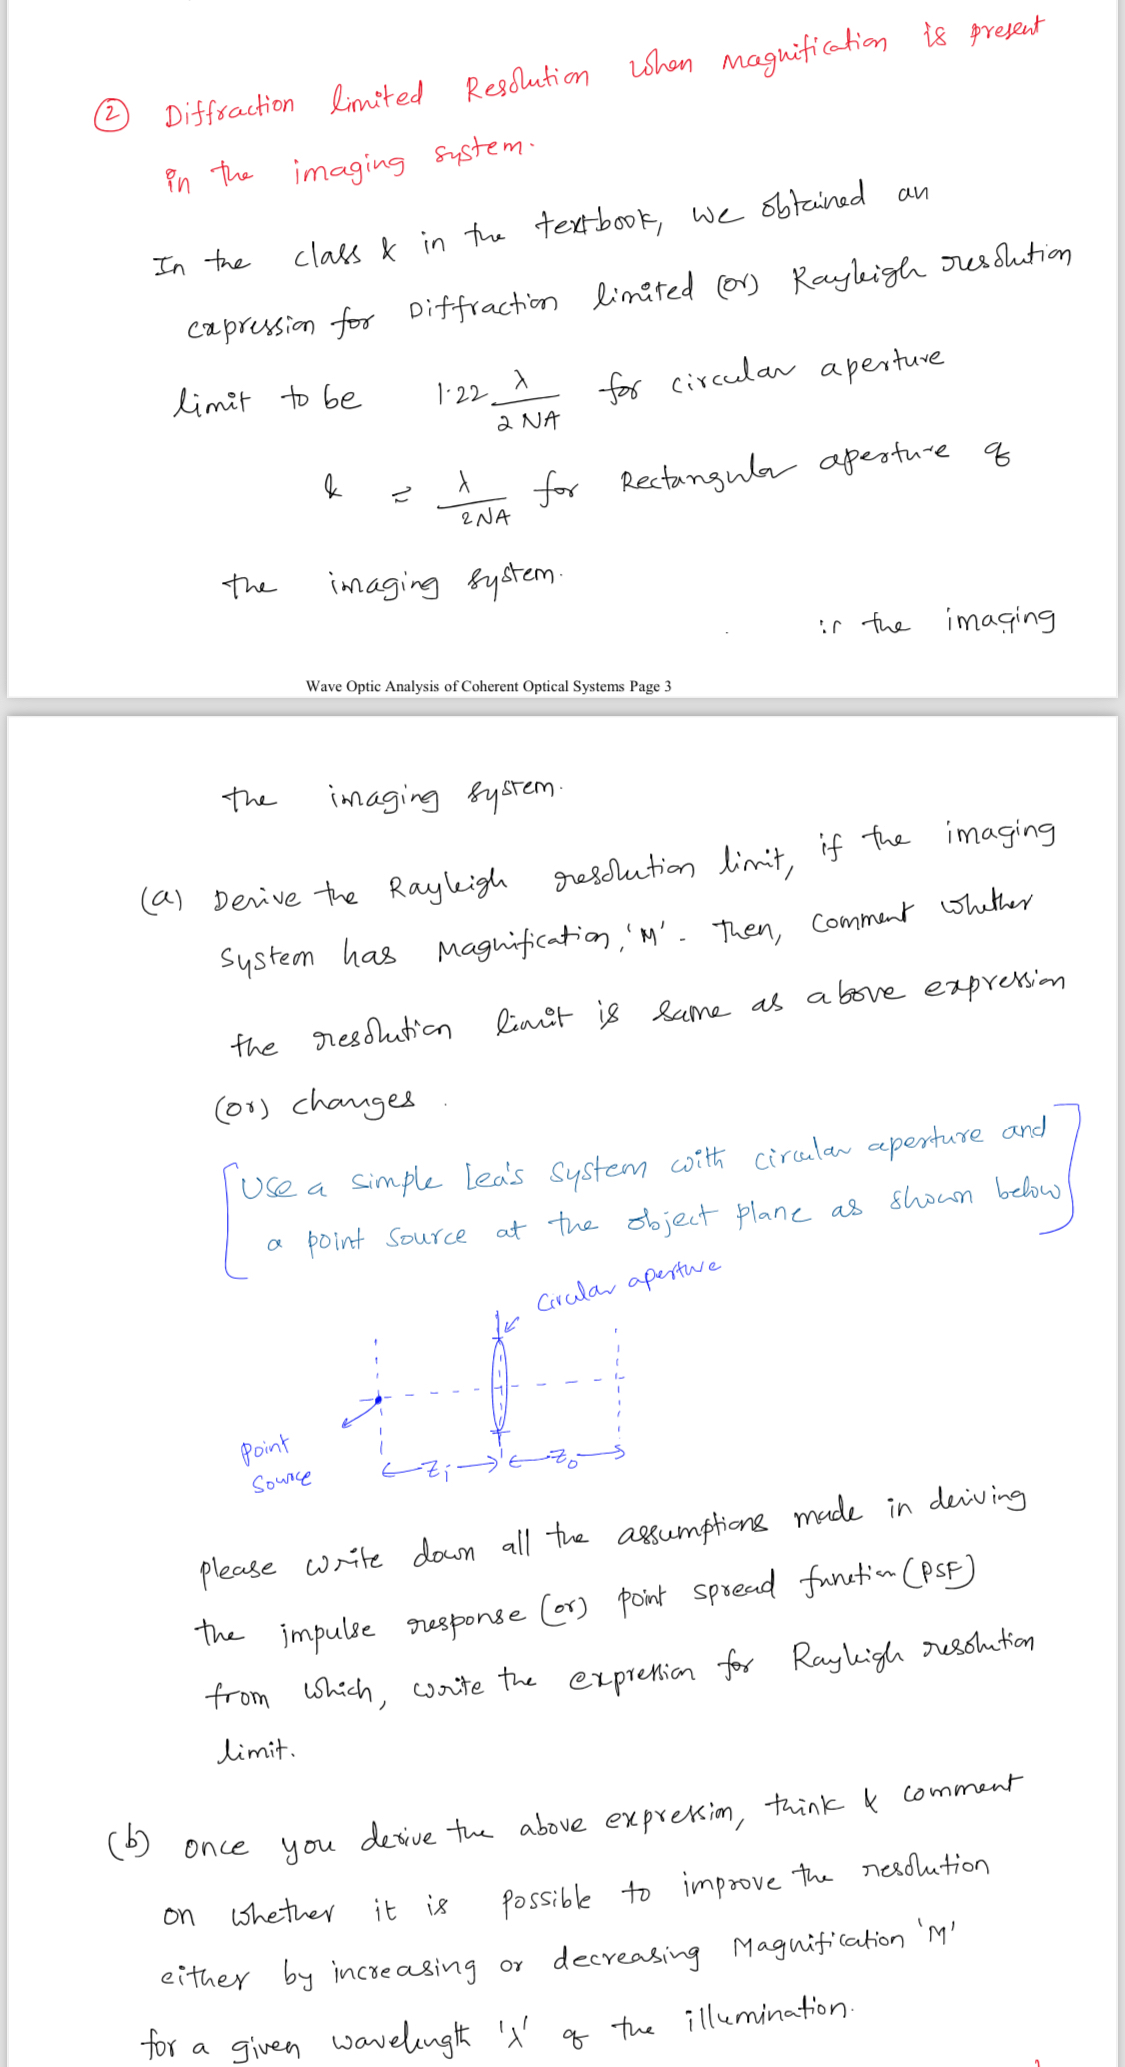 ② Diffraction limited Resolution when magnification is present
in the imaging system.
In the class & in the textbook, we obtained an
expression for Diffraction limited (or) Rayleigh resolution
limit to be 1.22 λ / 2 NA for circular aperture
& = λ / 2NA for Rectangular aperture of
the imaging system.
if the imaging
Wave Optic Analysis of Coherent Optical Systems Page 3
the imaging system.
(a) Derive the Rayleigh resolution limit, if the imaging
System has Magnification, 'M'. Then, comment whether
the resolution limit is same as above expression
(or) changes.
[Use a simple lens system with circular aperture and
a point source at the object plane as shown below]
Circular aperture
Point
Source
Zi
Zo
please write down all the assumptions made in deriving
the impulse response (or) point spread function (PSF)
from which, write the expression for Rayleigh resolution
limit.
(b) once you derive the above expression, think & comment
on whether it is possible to improve the resolution
either by increasing or decreasing Magnification 'M'
for a given wavelength 'λ' of the illumination.